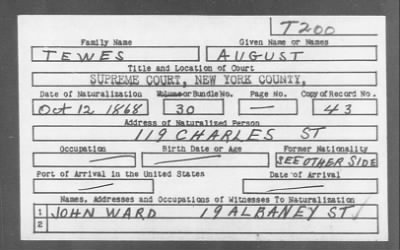 T200
Family Name Given Name or Names
TEWES AUGUST
Title and Location of Court
SUPREME COURT, NEW YORK COUNTY,
Date of Naturalization Volume or Bundle No. Page No. Copy of Record No.
Oct 12 1868 30 — 43
Address of Naturalized Person
119 CHARLES ST
Occupation Birth Date or Age Former Nationality
— — SEE OTHER SIDE
Port of Arrival in the United States Date of Arrival
— —
Names, Addresses and Occupations of Witnesses To Naturalization
1 JOHN WARD 19 ALBANEY ST
2